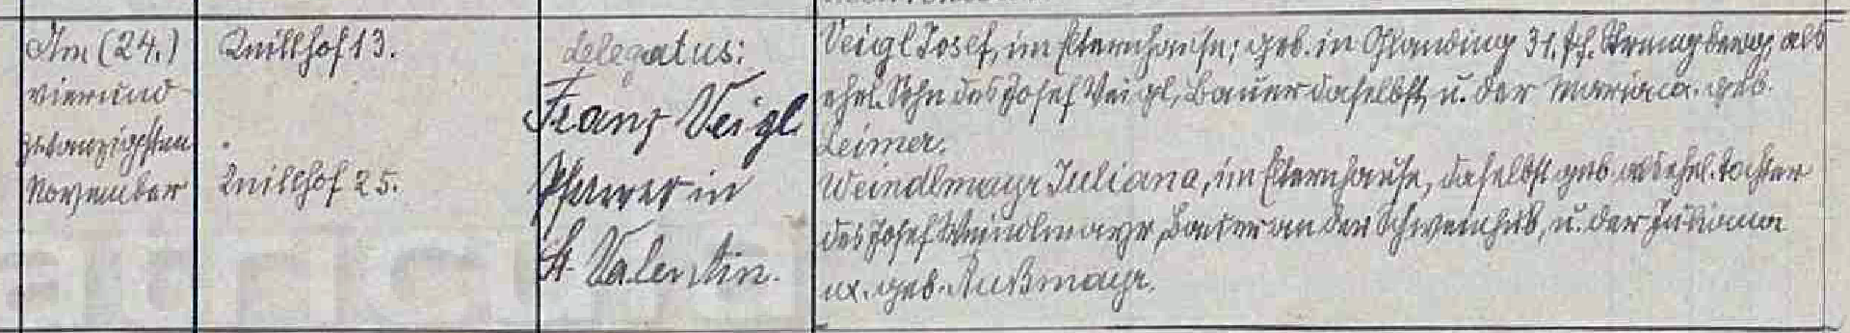 Am (24.)
vierund
zwanzigsten
November
Knillhof 13.
Knillhof 25.
delegatus:
Franz Veigl
Pfarrer in
St. Valentin.
Veigl Josef, im Elternhause; geb. in 31. Pf. als
ehel. Sohn des Josef Veigl, Bauer daselbst, u. der Maria ux. geb.
Leimer.
Weindlmayr Juliana, im Elternhause, daselbst geb. als ehel. Tochter
des Josef Weindlmayr, Bauer an der Schweinhub, u. der Juliana
ux. geb. Außmayr.